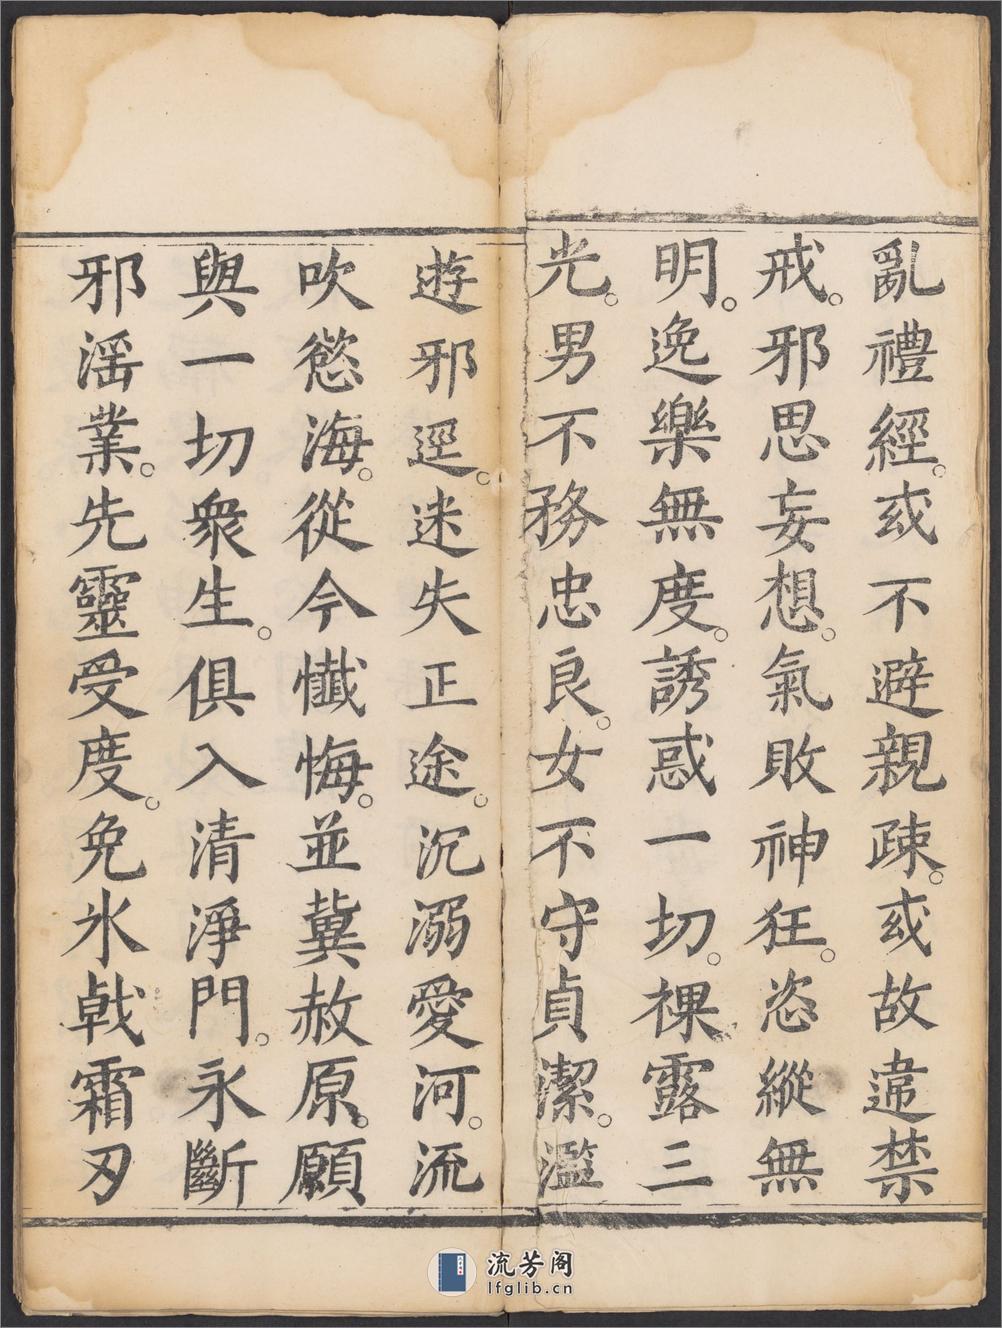 亂禮經。或不避親疎。或故違禁
戒。邪思妄想。氣敗神狂。恣縱無
明。逸樂無度。誘惑一切。裸露三
光。男不務忠良。女不守貞潔。濫
遊邪逕。迷失正途。沉溺愛河。流
吹慾海。從今懺悔。並冀赦原。願
與一切衆生。俱入清淨門。永斷
邪淫業。先靈受度。免氷戟霜刃
流芳阁
lfglib.cn